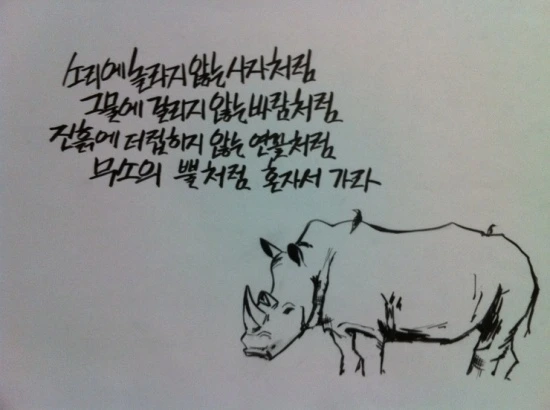 소리에 놀라지 않는 사자처럼
그물에 걸리지 않는 바람처럼
진흙에 더럽히지 않는 연꽃처럼
무소의 뿔처럼 혼자서 가라